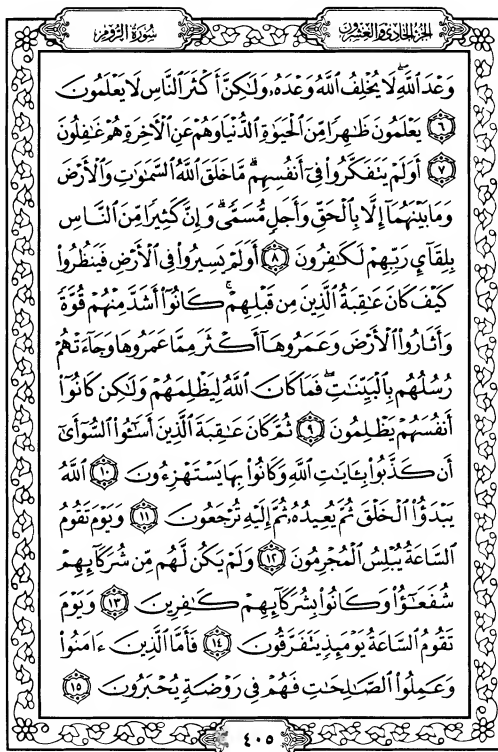 سُورَةُ الرُّومِ
الجُزْءُ الحَادِي وَالعِشْرُونَ
وَعْدَ ٱللَّهِۖ لَا يُخْلِفُ ٱللَّهُ وَعْدَهُۥ وَلَٰكِنَّ أَكْثَرَ ٱلنَّاسِ لَا يَعْلَمُونَ
۝٦ يَعْلَمُونَ ظَٰهِرًا مِّنَ ٱلْحَيَوٰةِ ٱلدُّنْيَا وَهُمْ عَنِ ٱلْأَخِرَةِ هُمْ غَٰفِلُونَ
۝٧ أَوَلَمْ يَتَفَكَّرُوا۟ فِىٓ أَنفُسِهِمۗ مَّا خَلَقَ ٱللَّهُ ٱلسَّمَٰوَٰتِ وَٱلْأَرْضَ
وَمَا بَيْنَهُمَآ إِلَّا بِٱلْحَقِّ وَأَجَلٍ مُّسَمًّىۗ وَإِنَّ كَثِيرًا مِّنَ ٱلنَّاسِ
بِلِقَآئِ رَبِّهِمْ لَكَٰفِرُونَ ۝٨ أَوَلَمْ يَسِيرُوا۟ فِى ٱلْأَرْضِ فَيَنظُرُوا۟
كَيْفَ كَانَ عَٰقِبَةُ ٱلَّذِينَ مِن قَبْلِهِمْۚ كَانُوٓا۟ أَشَدَّ مِنْهُمْ قُوَّةً
وَأَثَارُوا۟ ٱلْأَرْضَ وَعَمَرُوهَآ أَكْثَرَ مِمَّا عَمَرُوهَا وَجَآءَتْهُمْ
رُسُلُهُم بِٱلْبَيِّنَٰتِۖ فَمَا كَانَ ٱللَّهُ لِيَظْلِمَهُمْ وَلَٰكِن كَانُوٓا۟
أَنفُسَهُمْ يَظْلِمُونَ ۝٩ ثُمَّ كَانَ عَٰقِبَةَ ٱلَّذِينَ أَسَٰٓـُٔوا۟ ٱلسُّوٓأَىٰٓ
أَن كَذَّبُوا۟ بِـَٔايَٰتِ ٱللَّهِ وَكَانُوا۟ بِهَا يَسْتَهْزِءُونَ ۝١٠ ٱللَّهُ
يَبْدَؤُا۟ ٱلْخَلْقَ ثُمَّ يُعِيدُهُۥ ثُمَّ إِلَيْهِ تُرْجَعُونَ ۝١١ وَيَوْمَ تَقُومُ
ٱلسَّاعَةُ يُبْلِسُ ٱلْمُجْرِمُونَ ۝١٢ وَلَمْ يَكُن لَّهُم مِّن شُرَكَآئِهِمْ
شُفَعَٰٓؤُا۟ وَكَانُوا۟ بِشُرَكَآئِهِمْ كَٰفِرِينَ ۝١٣ وَيَوْمَ
تَقُومُ ٱلسَّاعَةُ يَوْمَئِذٍ يَتَفَرَّقُونَ ۝١٤ فَأَمَّا ٱلَّذِينَ ءَامَنُوا۟
وَعَمِلُوا۟ ٱلصَّٰلِحَٰتِ فَهُمْ فِى رَوْضَةٍ يُحْبَرُونَ ۝١٥
٤٠٥